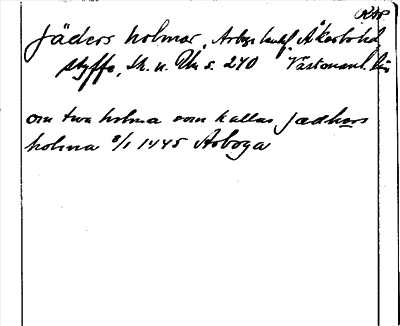 Rop
Jäders holmar, Arboga landsf. Åkerbo hd
Styffe, Sk. u. Un s. 240 Västmanl. län
om twa holma som kallas jædhers
holma 8/1 1445 Arboga